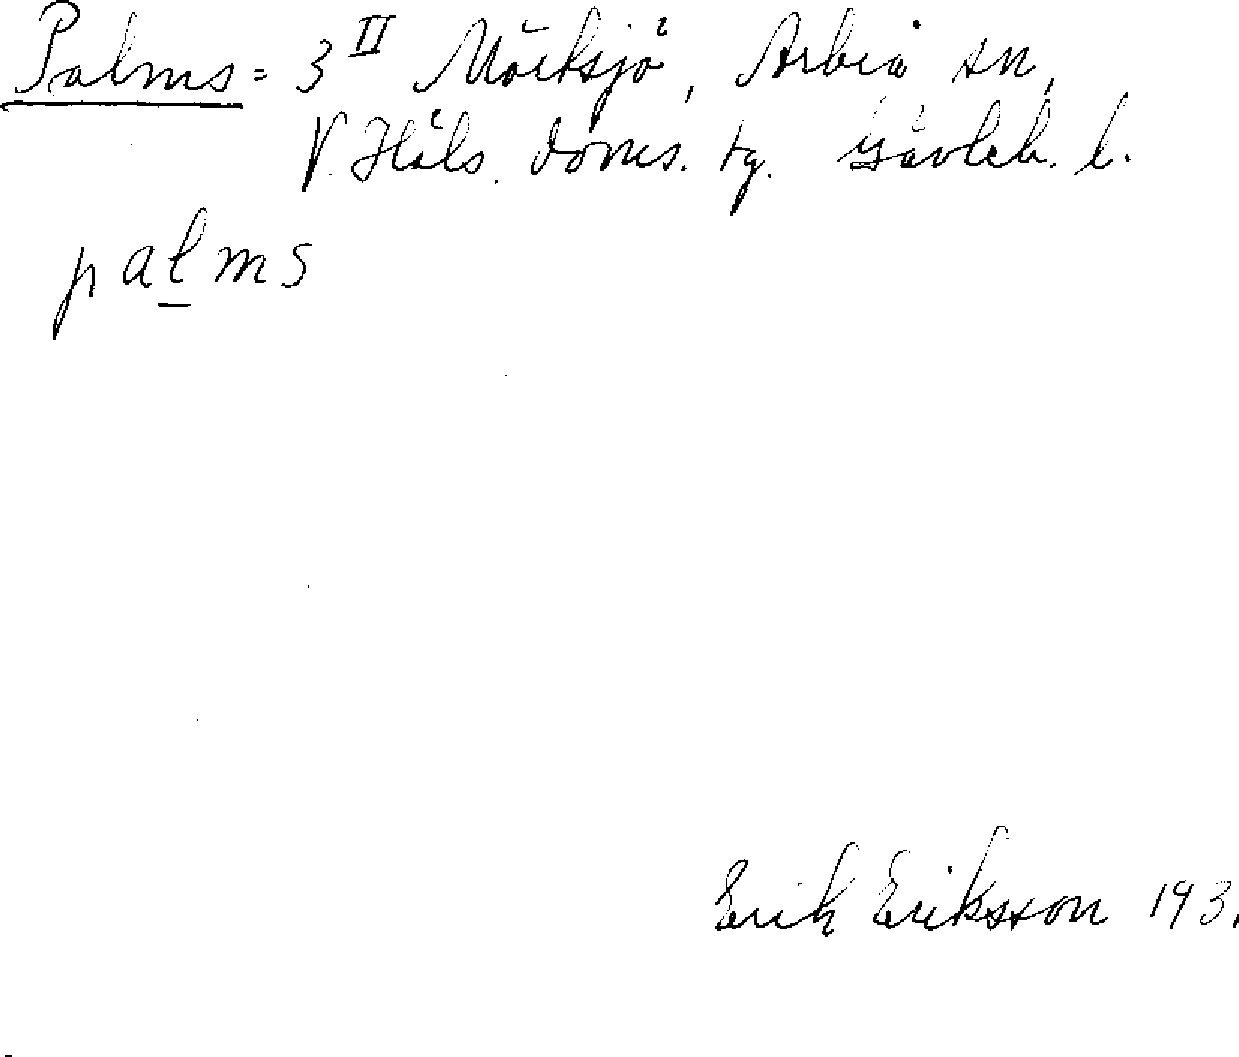 Palms = 3 II Mörtsjö, Arbrå sn,
V. Häls. doms. tg. Gävleb. l.
palms
Erik Eriksson 193